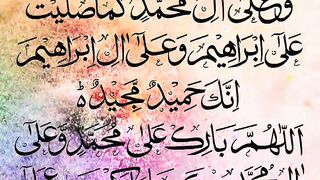 وَعَلٰٓى اٰلِ مُحَمَّدٍ كَمَا صَلَّيْتَ
عَلٰٓى اِبْرَاهِيْمَ وَعَلٰٓى اٰلِ اِبْرَاهِيْمَ
اِنَّكَ حَمِيْدٌ مَّجِيْدٌ ؕ
اَللّٰهُمَّ بَارِكْ عَلٰى مُحَمَّدٍ وَّعَلٰٓى